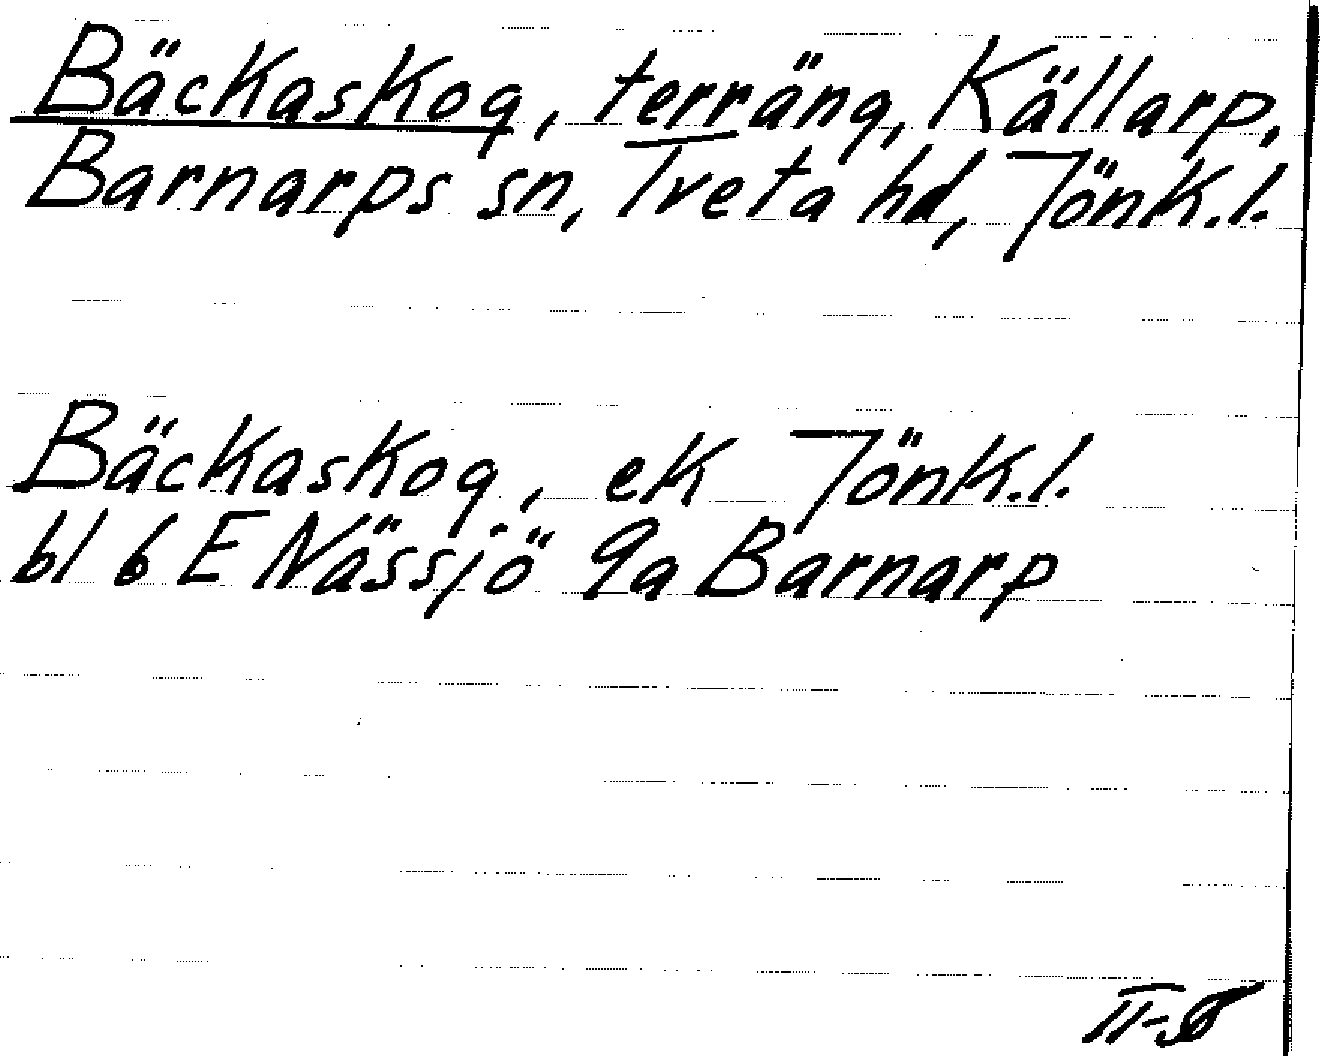 Bäckaskog, terräng, Källarp,
Barnarps sn, Tveta hd, Jönk.l.
Bäckaskog, ek Jönk.l.
bl 6 E Nässjö 9a Barnarp